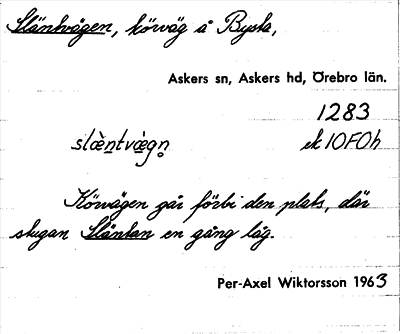 Släntvägen, körväg å Bysta,
Askers sn, Askers hd, Örebro län.
1283
slä̀ntvä̀gn̥ ek 10F0h
Körvägen går förbi den plats, där
stugan Släntan en gång låg.
Per-Axel Wiktorsson 1963